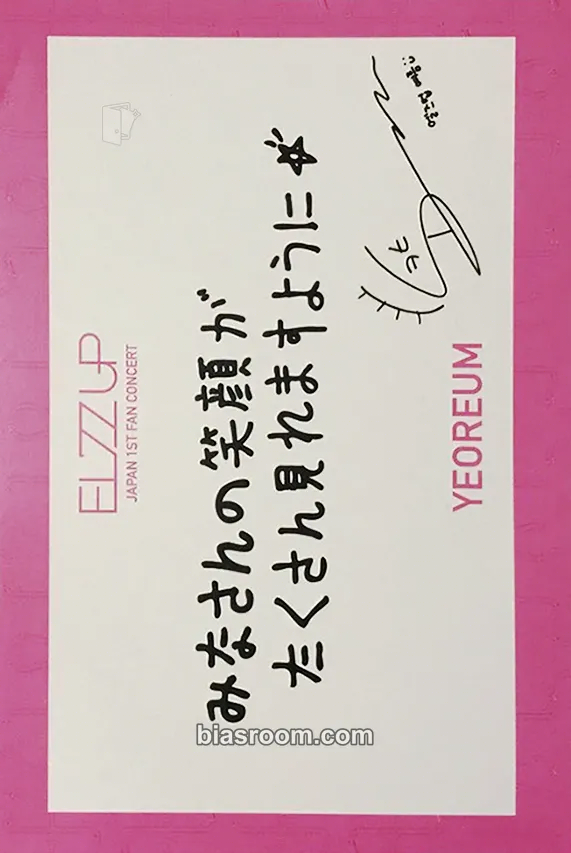 ELZZ UP
JAPAN 1ST FAN CONCERT
みなさんの笑顔が
たくさん見れますように☆
YEOREUM
biasroom.com